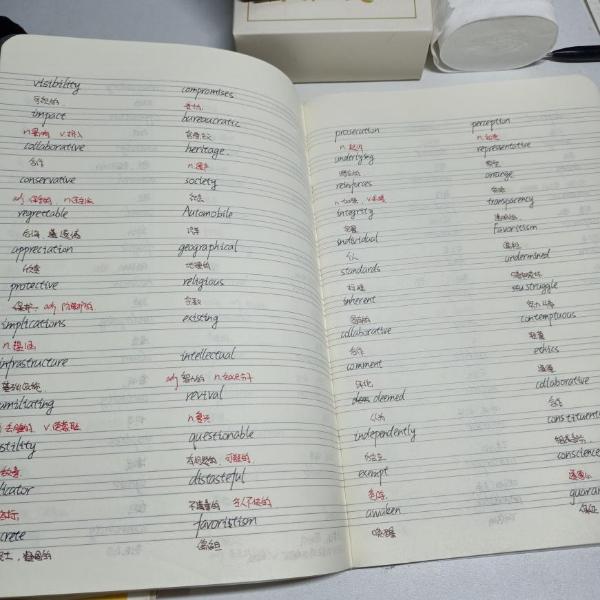 visibility
可见的
impact
n.影响 v.挤入
collaborative
合作
conservative
adj 保守的 n.保守派
regrettable
appreciation
欣赏
protective
保护 adj 防御的
implications
n.
infrastructure
基础设施
umiliating
stility
敌意
licator
crete
compromises
妥协
bureaucratic
官僚主义
heritage
n.遗产
society
社会
Automobile
汽车
geographical
地理的
religious
宗教
existing
intellectual
adj 智力的 n.知识分子
revival
n.复兴
questionable
有问题的 可疑的
distasteful
不道德的 令人不快的
favoritism
偏袒
prosecution
n.起诉
underlying
潜在的
reinforces
n.加强
integrity
individual
个人
standards
标准
inherent
固有的
collaborative
合作
comment
评论
deemed
认为
independently
独立
exempt
免除
awaken
唤醒
perception
n.知觉
representative
arrange
安排
transparency
透明的
favoritism
偏袒
undermined
struggle
contemptuous
ethics
道德
collaborative
合作
constituent
conscience
guaran
保证